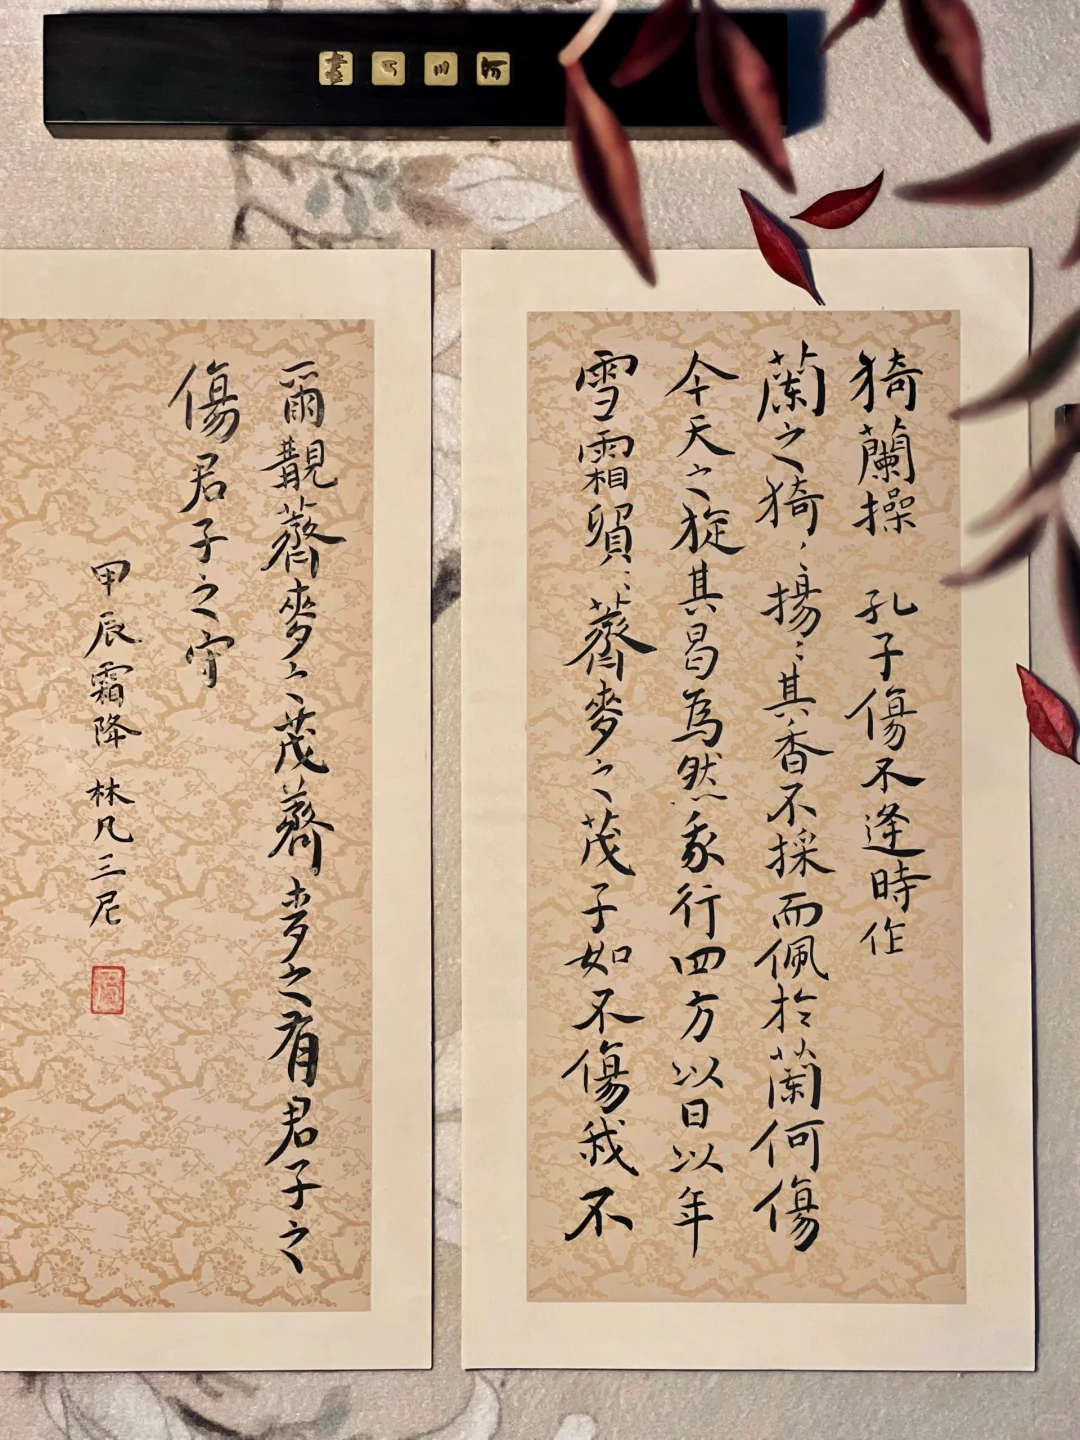 猗蘭操 孔子傷不逢時作
蘭之猗〻揚〻其香不採而佩於蘭何傷
今天之旋其曷為然我行四方以日以年
雪霜貿〻薺麥之茂子如不傷我不
爾覯薺麥之茂薺麥之有君子之
傷君子之守
甲辰霜降 林凡三尼